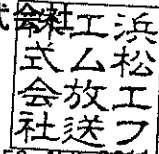 会社
浜松エフ
エム放送
式会社